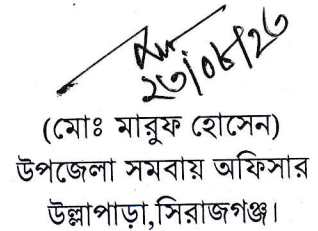 ২৩/০৮/২৩
(মোঃ মারুফ হোসেন)
উপজেলা সমবায় অফিসার
উল্লাপাড়া,সিরাজগঞ্জ।